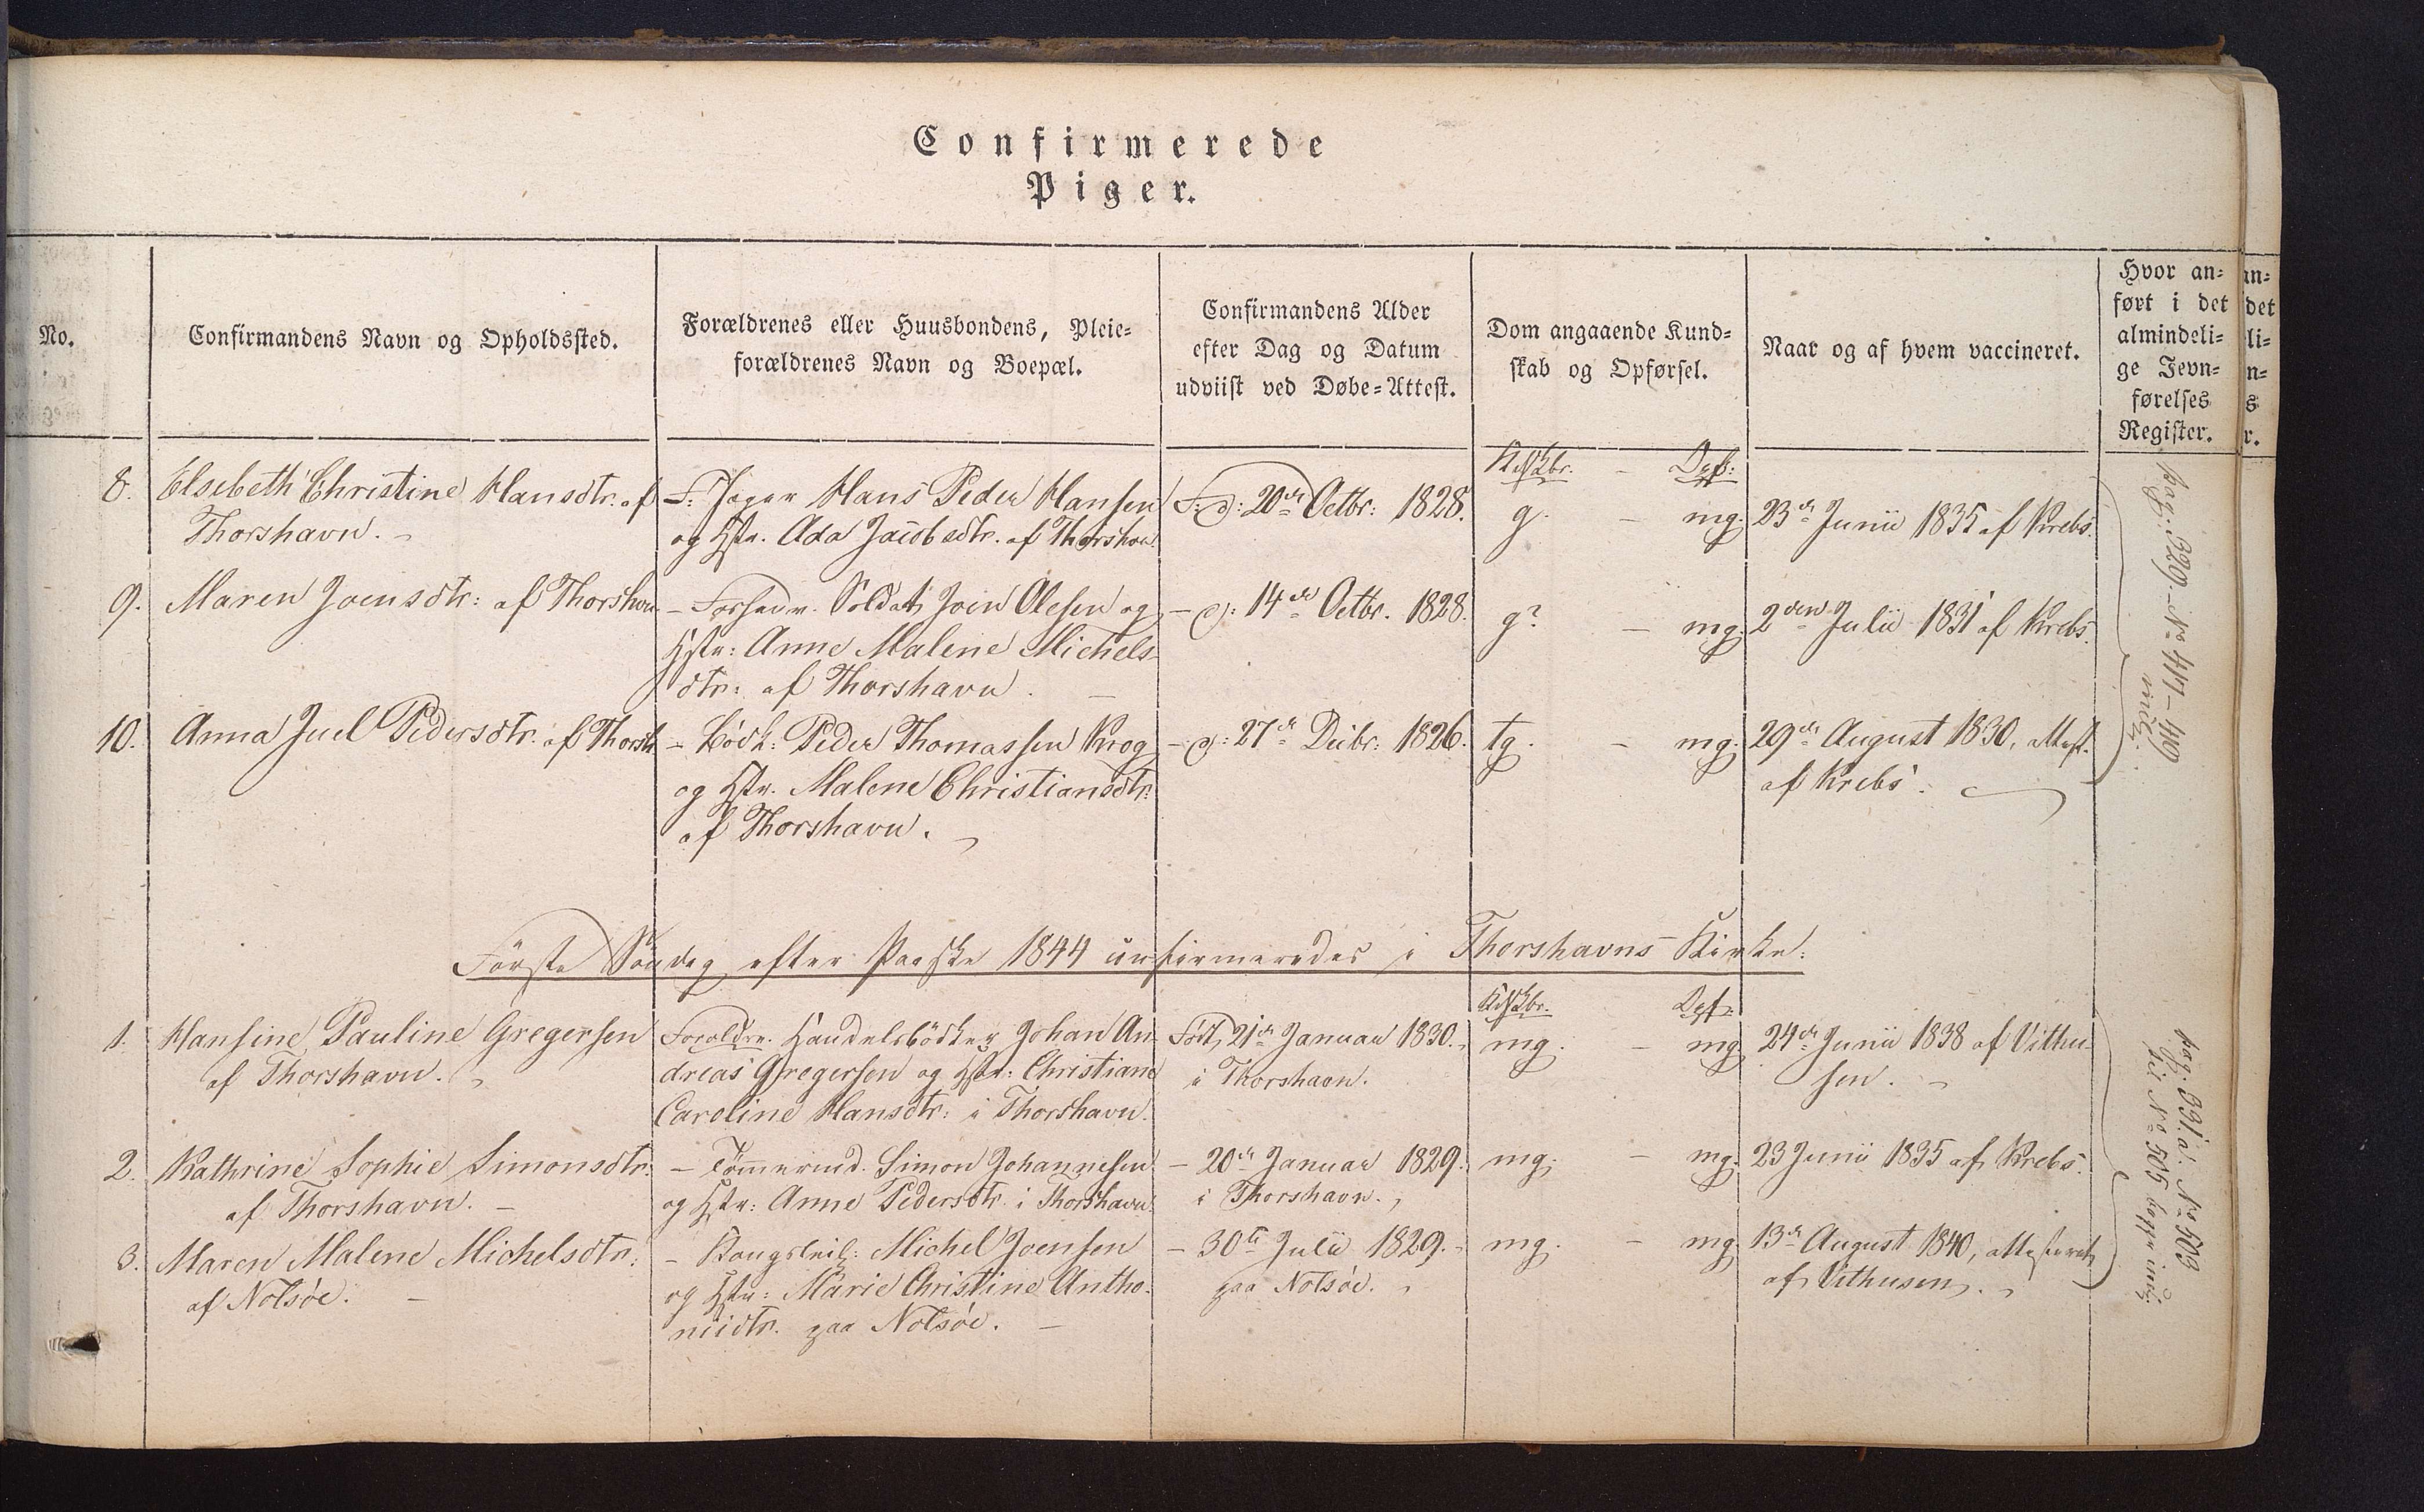 Confirmerede
Piger.
No.
Confirmandens Navn og Opholdssted.
Forældrenes eller Huusbondens, Pleie-
forældrenes Navn og Boepæl.
Confirmandens Alder
efter Dag og Datum
udviist ved Døbe-Attest.
Dom angaaende Kund-
skab og Opførsel.
Naar og af hvem vaccineret.
Hvor an-
ført i det
almindeli-
ge Jevn-
førelses
Register.
8.
Elsebeth Christine Hansdtr. af
Thorshavn.
F: Jæger Hans Peder Hansen
og Hstr. Ada Jacobsdtr. af Thorshavn
F. d: 20de Octbr: 1828.
Kdskbr. - Opf:
g. - mg.
23de Junii 1835 af Krebs.
9.
Maren Joensdtr: af Thorshavn
- Soldat Joen Olesen og
Hstr: Anne Malene Michels-
dtr: af Thorshavn.
- d: 14de Octbr. 1828.
g? - mg.
2den Julii 1831 af Krebs.
10.
Anna Juel Pedersdtr. af Thorsh.
- Bødk: Peder Thomassen Krog
og Hstr. Malene Christiansdtr.
af Thorshavn.
- d: 27de Decbr: 1826.
tg. - mg.
29de August 1830, attest.
af Krebs.
pag: 329 - No 417 - 419
incl:
Første Søndag efter Paaske 1844 confirmeredes i Thorshavns Kirke:
Kdskbr. - Opf.
1.
Hansine Pauline Gregersen
af Thorshavn.
Forældre. Handelsbødker Johan An-
dreas Gregersen og Hstr: Christiane
Caroline Hansdtr: i Thorshavn.
Født 21de Januar 1830.
i Thorshavn.
mg. - mg
24de Junii 1838 af Vithu-
sen.
2.
Kathrine Sophie Simonsdtr:
af Thorshavn.
- Tømmermd. Simon Johannesen
og Hstr: Anne Pedersdtr. i Thorshavn.
- 20de Januar 1829.
i Thorshavn.
mg. - mg.
23 Junii 1835 af Krebs.
3.
Maren Malene Michelsdtr:
af Nolsøe.
- Michel Joensen
og Hstr: Marie Christine Antho-
niidtr. paa Nolsøe.
- 30te Julii 1829.
paa Nolsøe.
mg. - mg
13de August 1840, attesteret
af Vithusen.
pag: 331. No 503
til No 505 begge incl: